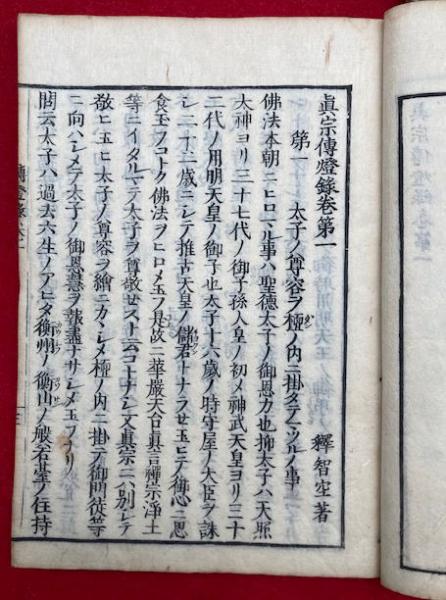 眞宗傳燈錄卷第一
釋智空著
第一　太子ノ尊容ヲ極ノ内ニ掛タテマツルノ事
佛法本朝ニヒロマル事ハ聖德太子ノ御恩力也抑太子ハ天照
大神ヨリ三十七代ノ御子孫人皇ノ初メ神武天皇ヨリ三十
二代ノ用明天皇ノ御子也太子十六歳ノ時守屋ノ大臣ヲ誅
シ二十二歳ニシテ推古天皇ノ儲君トナラせ玉ヒテ御心ニ思
食玉フコトク佛法ヲヒロメ玉フ見故ニ華嚴天台眞言禪宗淨土
等ニイタルマテ太子ヲ尊敬せスト云コトナシ又眞宗ニハ別シテ
敬ヒ玉ヒ太子ノ尊容ヲ繪ニカヽシメ極ノ内ニ掛テ御門徒等
ニ向ハシメテ太子ノ御恩德ヲ報盡ナサシメ玉フナリ
問云太子ハ過去六生ノアヒタ衡州　衡山ノ般若臺ノ住持
傳燈錄